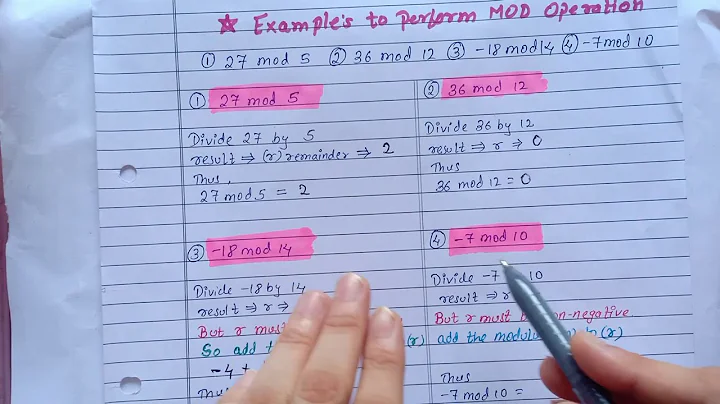 ★ Example's to Perform MOD Operation
① 27 mod 5 ② 36 mod 12 ③ -18 mod 14 ④ -7 mod 10
① 27 mod 5
Divide 27 by 5
result ⇒ (r) remainder ⇒ 2
Thus,
27 mod 5 = 2
② 36 mod 12
Divide 36 by 12
result ⇒ r ⇒ 0
Thus
36 mod 12 = 0
③ -18 mod 14
Divide -18 by 14
result ⇒ r ⇒
But r must
So add
-4 +
④ -7 mod 10
Divide -7 10
result ⇒ r
But r must non-negative
(r) add the (r)
Thus
-7 mod 10 =